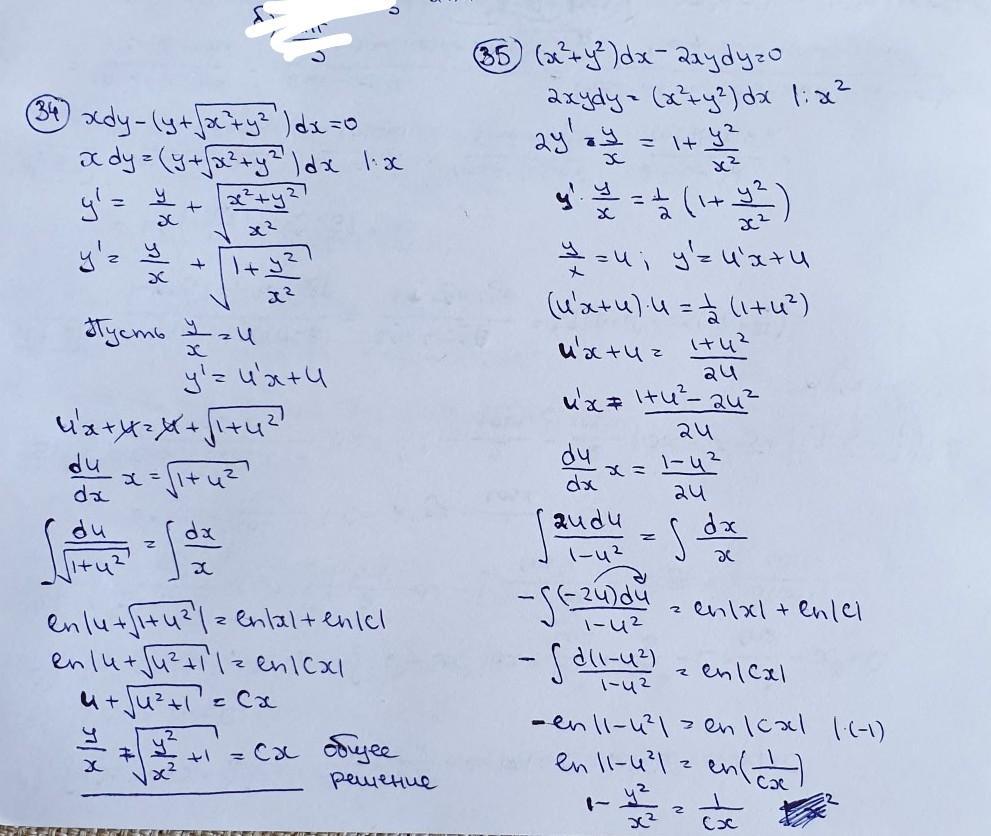 34) xdy-(y+√(x²+y²))dx=0
xdy=(y+√(x²+y²))dx |:x
y' = y/x + √((x²+y²)/x²)
y' = y/x + √(1+y²/x²)
Пусть y/x = u
y' = u'x+u
u'x+u=u+√(1+u²)
du/dx x = √(1+u²)
∫ du/√(1+u²) = ∫ dx/x
ln|u+√(1+u²)| = ln|x|+ln|c|
ln|u+√(u²+1)| = ln|Cx|
u+√(u²+1) = Cx
y/x + √(y²/x²+1) = Cx общее
решение
35) (x²+y²)dx-2xydy=0
2xydy = (x²+y²)dx |:x²
2y' · y/x = 1+y²/x²
y' · y/x = 1/2 (1+y²/x²)
y/x = u; y' = u'x+u
(u'x+u)·u = 1/2 (1+u²)
u'x+u = (1+u²)/2u
u'x = (1+u²-2u²)/2u
du/dx x = (1-u²)/2u
∫ 2udu/(1-u²) = ∫ dx/x
-∫ (-2u)du/(1-u²) = ln|x|+ln|c|
-∫ d(1-u²)/(1-u²) = ln|Cx|
-ln|1-u²| = ln|Cx| |·(-1)
ln|1-u²| = ln(1/Cx)
1-y²/x² = 1/Cx